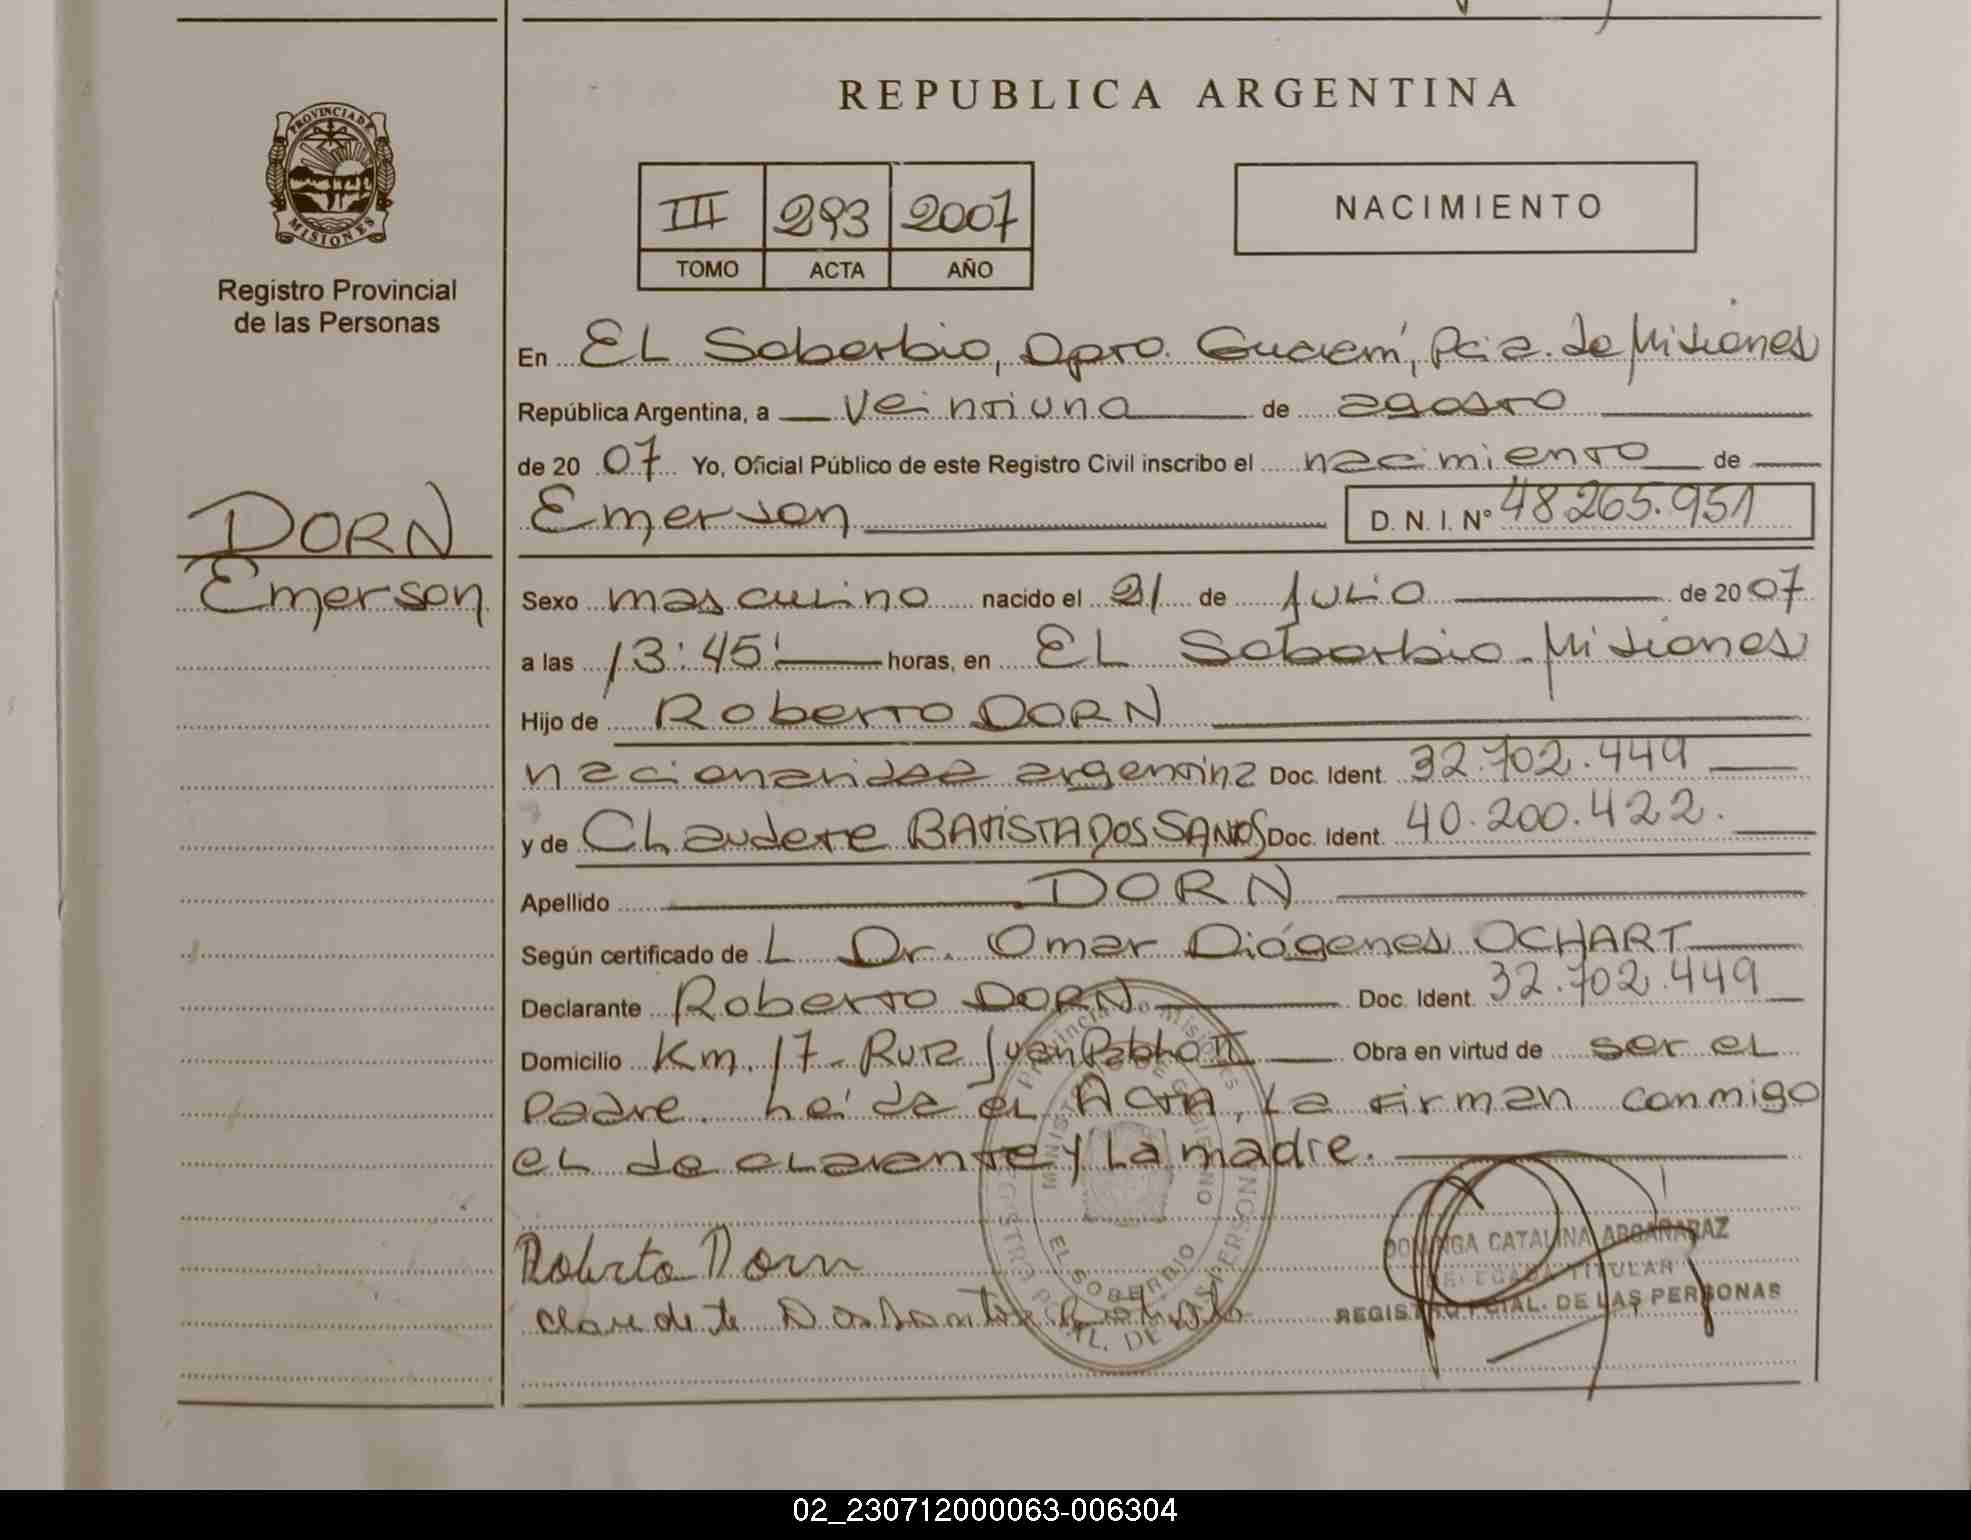 REPUBLICA ARGENTINA
PROVINCIA DE MISIONES
Registro Provincial
de las Personas
III 293 2007
TOMO ACTA AÑO
NACIMIENTO
En EL Soberbio, Dpto. Guaraní, Pcia. de Misiones
República Argentina, a veintiuno de agosto
de 20 07 Yo, Oficial Público de este Registro Civil inscribo el nacimiento de
Emerson D. N. I. Nº 48.265.951
DORN
Emerson
Sexo masculino nacido el 21 de Julio de 20 07
a las 13:45' horas, en EL Soberbio - Misiones
Hijo de Roberto DORN
nacionalidad argentina Doc. Ident. 32.702.449
y de Claudete BATISTA DOS SANTOS Doc. Ident. 40.200.422.
Apellido DORN
Según certificado de L Dr. Omar Diógenes OCHART
Declarante Roberto DORN Doc. Ident. 32.702.449
Domicilio Km. 17 - Ruta Juan Pablo II Obra en virtud de ser el
Padre. Leída el ACTA, La firman conmigo
el declarante y La madre.
Roberto Dorn
Claudete Dos Santos
DOMINGA CATALINA ARGAÑARAZ
DELEGADA TITULAR
REGISTRO PCIAL. DE LAS PERSONAS
EL SOBERBIO
02_230712000063-006304